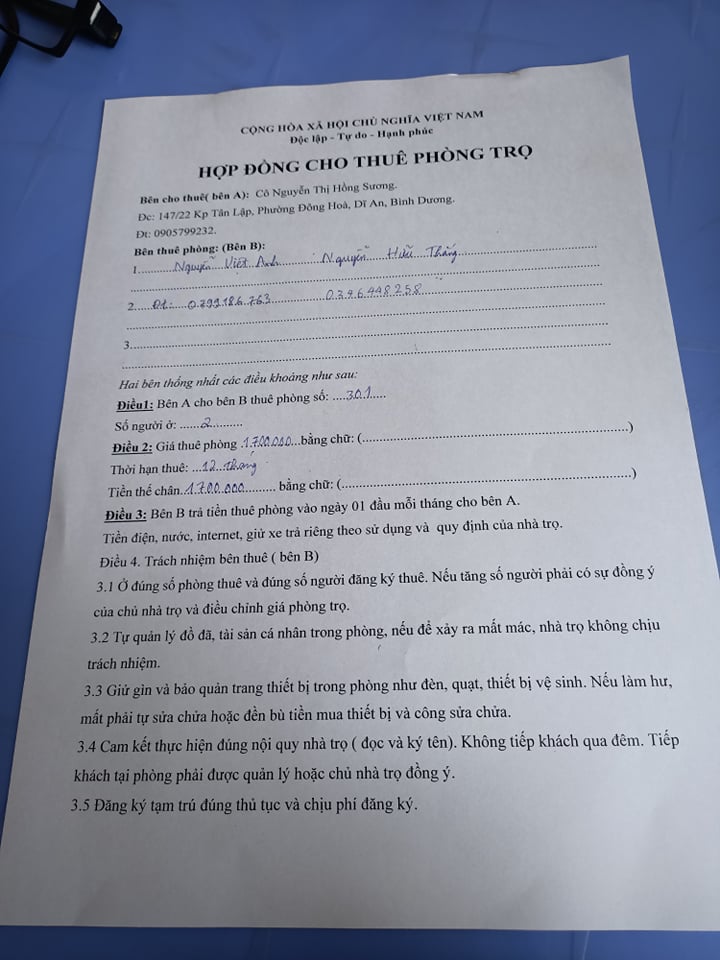 CỘNG HÒA XÃ HỘI CHỦ NGHĨA VIỆT NAM
Độc lập - Tự do - Hạnh phúc
HỢP ĐỒNG CHO THUÊ PHÒNG TRỌ
Bên cho thuê( bên A): Cô Nguyễn Thị Hồng Sương.
Đc: 147/22 Kp Tân Lập, Phường Đông Hoà, Dĩ An, Bình Dương.
Đt: 0905799232.
Bên thuê phòng: (Bên B):
1..........Nguyễn Việt Anh.......... Nguyễn Hữu Thắng..........
..........
2.....Đt: 0799186763.......... 0346448258..........
..........
3..........
..........
Hai bên thống nhất các điều khoảng như sau:
Điều1: Bên A cho bên B thuê phòng số: ....301.....
Số người ở: ......2..........
Điều 2: Giá thuê phòng .1.700.000...bằng chữ: (..........)
Thời hạn thuê: ...12 tháng
Tiền thế chân.1.700.000.......... bằng chữ: (..........)
Điều 3: Bên B trả tiền thuê phòng vào ngày 01 đầu mỗi tháng cho bên A.
Tiền điện, nước, internet, giử xe trả riêng theo sử dụng và quy định của nhà trọ.
Điều 4. Trách nhiệm bên thuê ( bên B)
3.1 Ở đúng số phòng thuê và đúng số người đăng ký thuê. Nếu tăng số người phải có sự đồng ý
của chủ nhà trọ và điều chỉnh giá phòng trọ.
3.2 Tự quản lý đồ đã, tài sản cá nhân trong phòng, nếu để xảy ra mất mác, nhà trọ không chịu
trách nhiệm.
3.3 Giử gìn và bảo quản trang thiết bị trong phòng như đèn, quạt, thiết bị vệ sinh. Nếu làm hư,
mất phải tự sửa chửa hoặc đền bù tiền mua thiết bị và công sửa chửa.
3.4 Cam kết thực hiện đúng nội quy nhà trọ ( đọc và ký tên). Không tiếp khách qua đêm. Tiếp
khách tại phòng phải được quản lý hoặc chủ nhà trọ đồng ý.
3.5 Đăng ký tạm trú đúng thủ tục và chịu phí đăng ký.